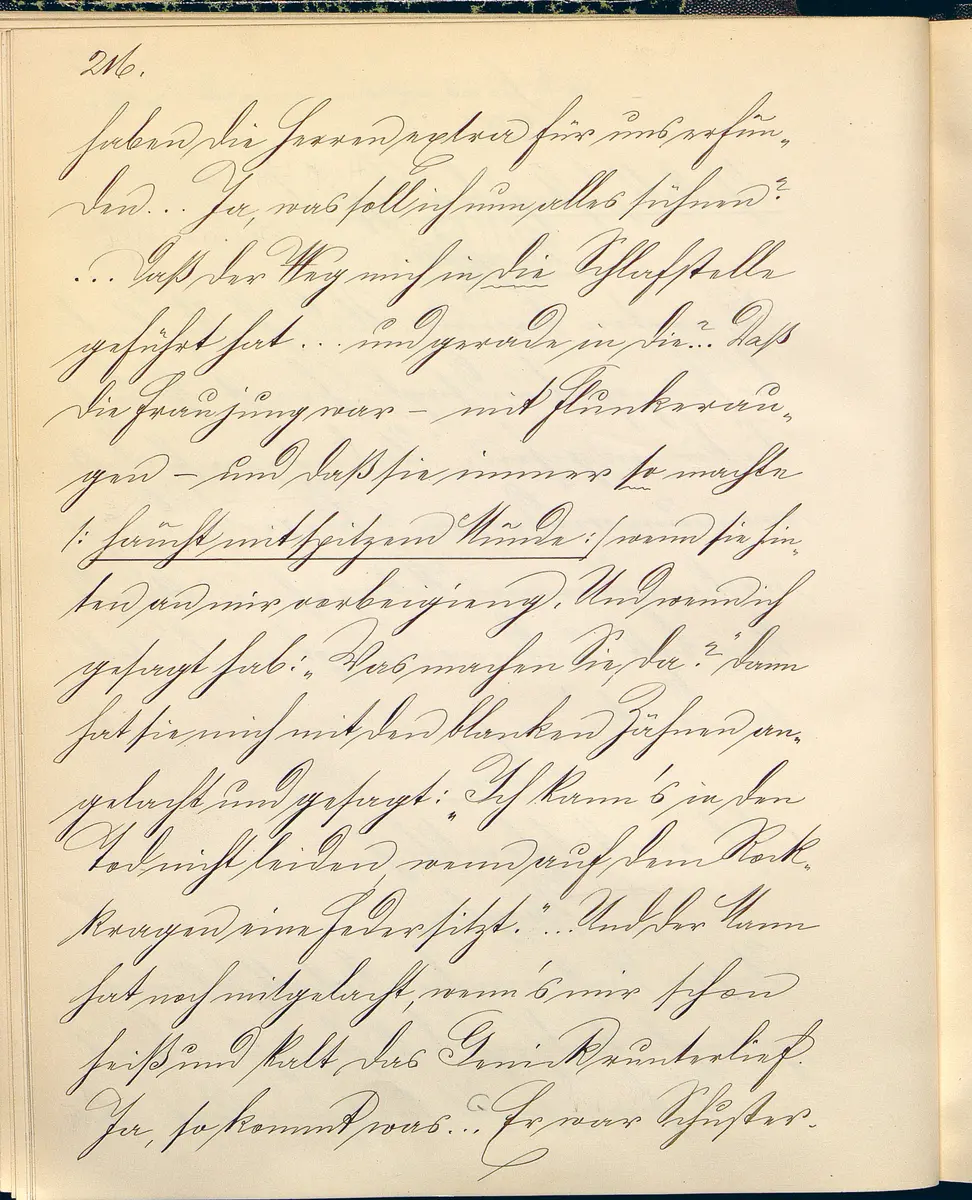 216.
haben die Herren extra für uns erfun-
den... Ja, was soll ich nun alles sühnen?
... Daß der Weg mich in die Schlafstelle
geführt hat... und gerade in die?.. Daß
die Frau jung war – mit Flunkerau-
gen – und daß sie immer so machte
/: haucht mit spitzem Munde :/ wenn sie hin-
ten an mir vorbeigieng. Und wenn ich
gesagt hab: „Was machen Sie da?" dann
hat sie mich mit den blanken Zähnen an-
gelacht und gesagt: „Ich kann's in den
Tod nicht leiden, wenn auf dem Rock-
kragen eine Feder sitzt."... Und der Mann
hat noch mitgelacht, wenn's mir schon
heiß und kalt das Genick runterlief.
Ja, so kommt was... Er war Schuster.